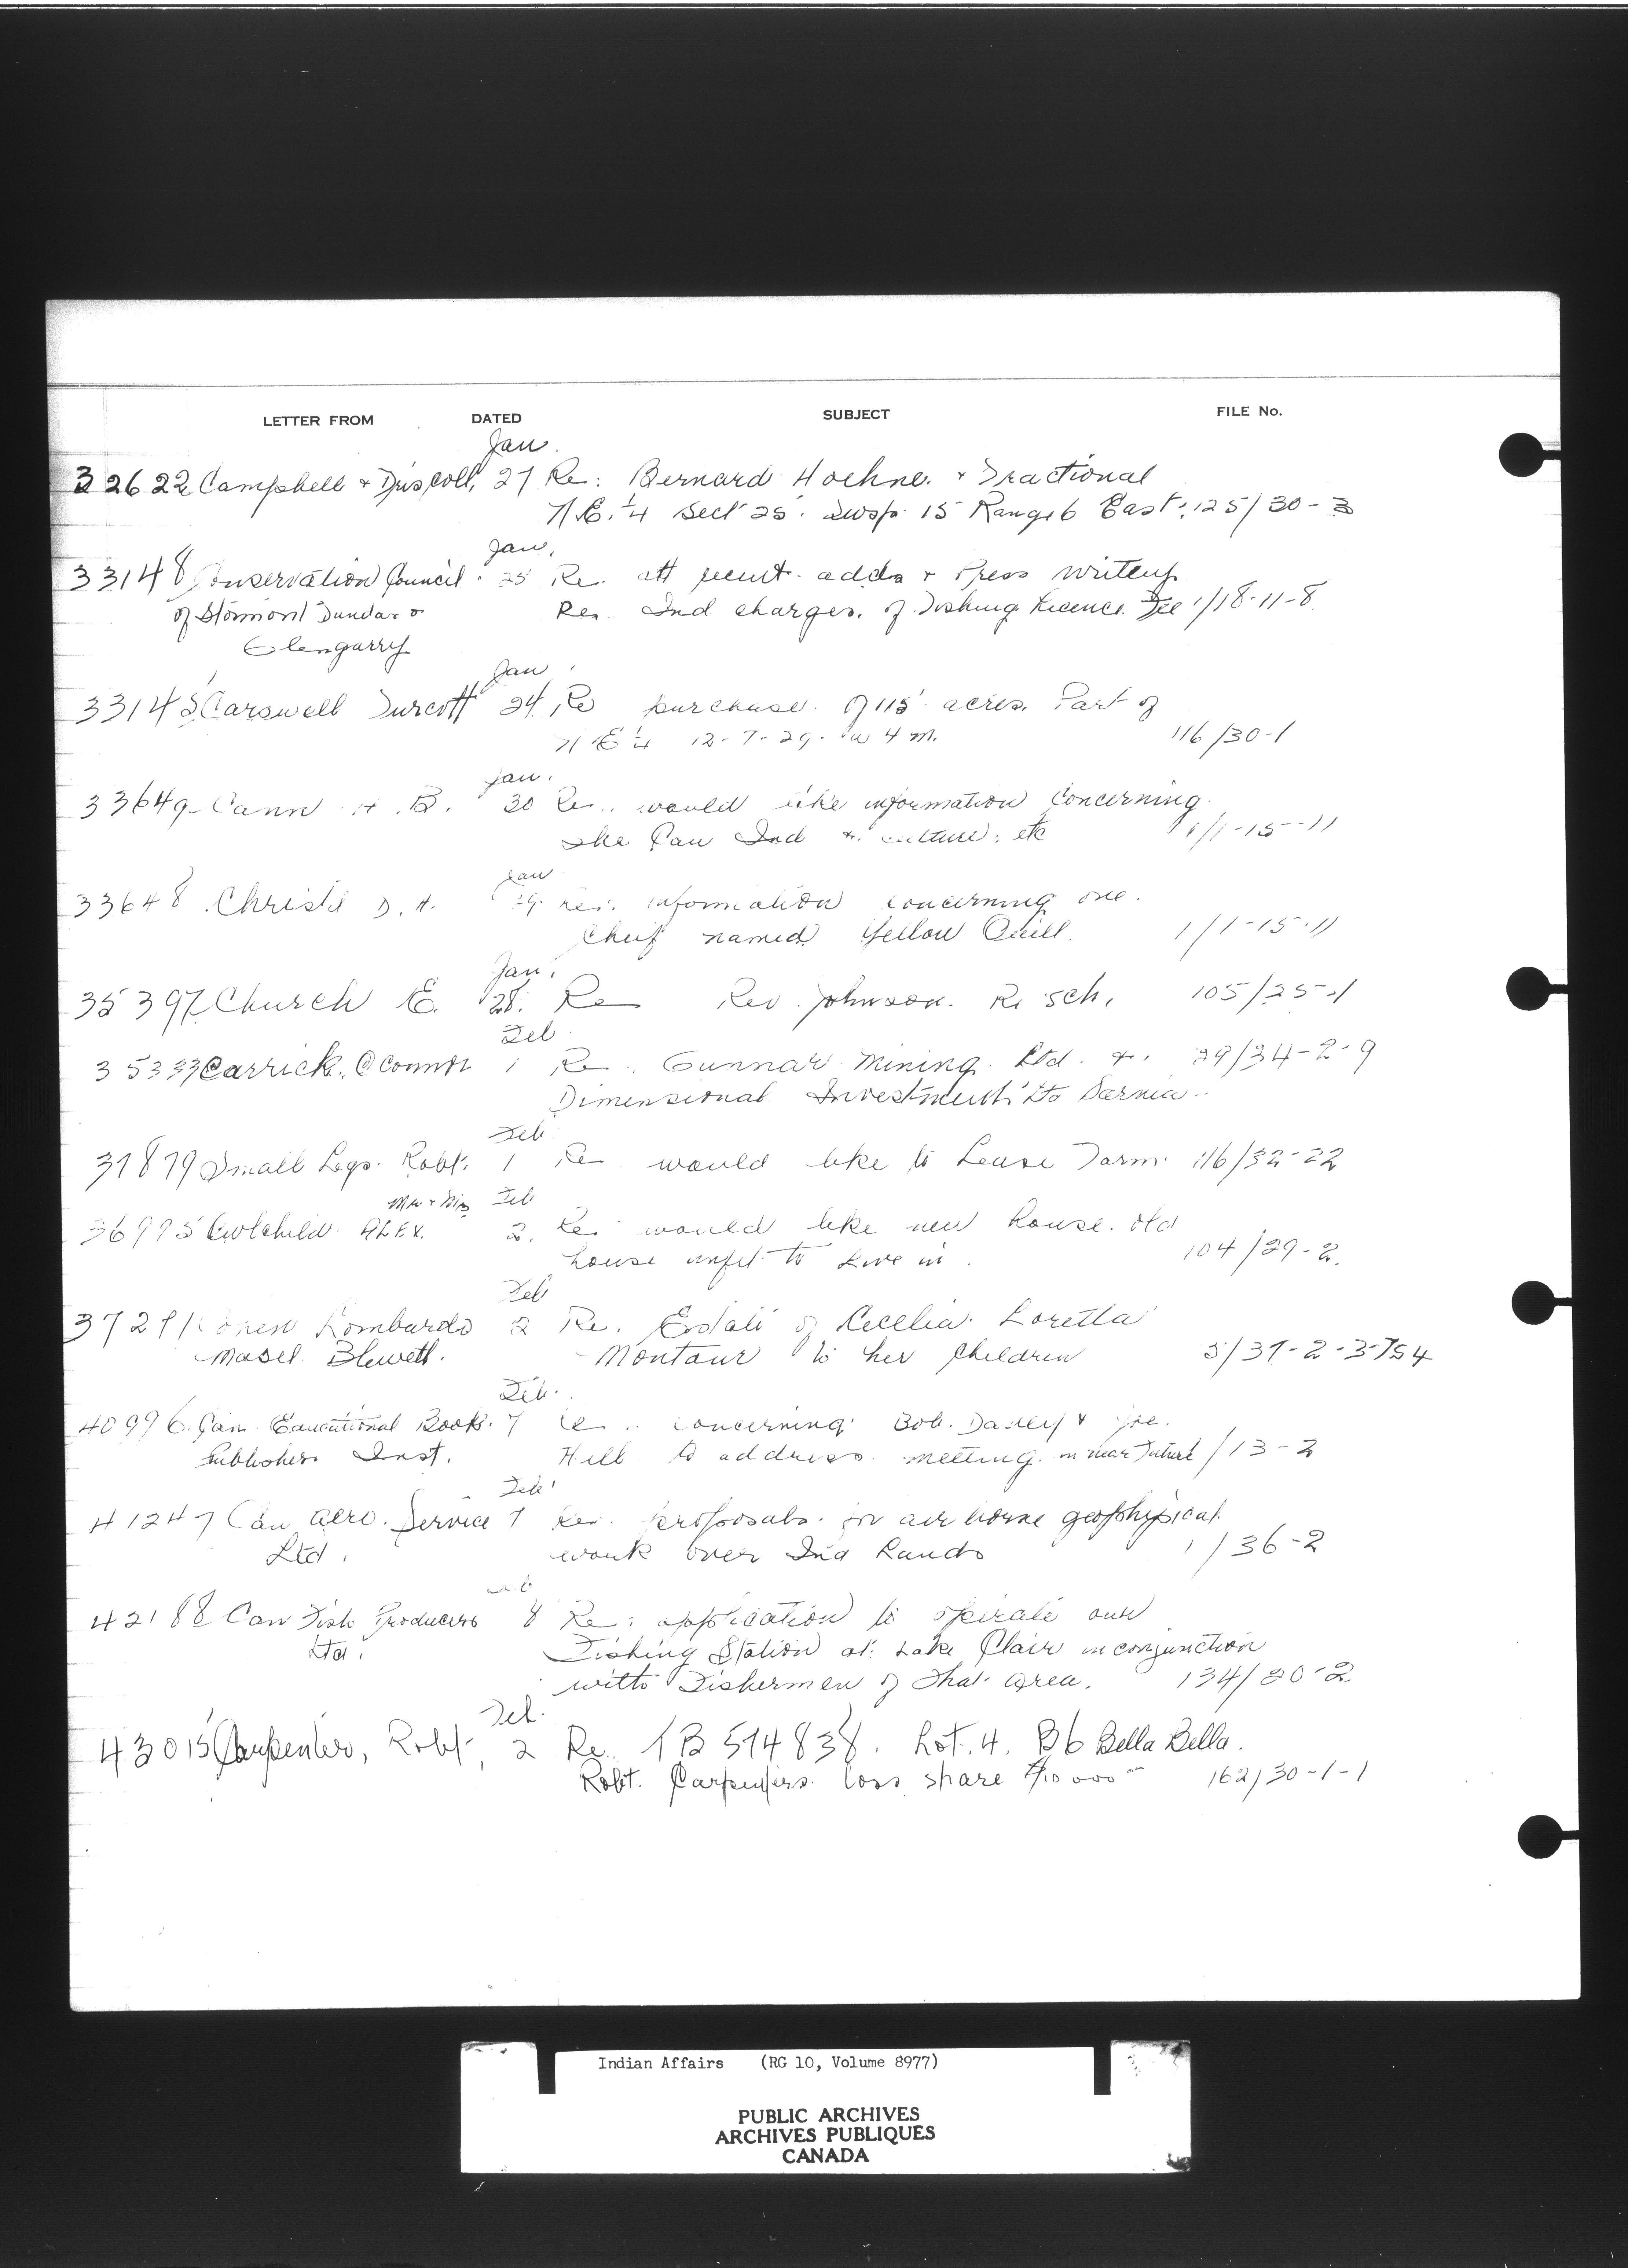 LETTER FROM DATED SUBJECT FILE No.
Jan.
32622 Campbell & Driscoll, 27 Re: Bernard Hoehne. & Fractional
N.E. 1/4 Sect 25. Twsp. 15 Range 6 East. 125/30-3
Jan.
33148 Conservation Council. 25 Re. att recent. adds & Press writeup
of Stormont Dundas & Re. Ind charges. of Fishing Licence. Fee 1/18-11-8
Glengarry
Jan
33145 Carswell Turcott 24 Re purchase. of 115 acres. Part of
N E 1/4 12-7-29. W 4 M. 116/30-1
Jan.
33649 Cann H. B. 30 Re. would like information concerning
The Paw Ind & culture. etc 1/1-15-11
Jan
33648 Christie D. H. 29. re. information concerning one.
Chief named Yellow Quill. 1/1-15-11
Jan.
35397 Church E. 28. Re Rev. Johnson. R. Sch. 105/25-1
Feb
35333 Carrick. O'Connor 1 Re. Gunnar Mining Ltd. &. 29/34-2-9
Dimensional Investments Lto Sarnia..
Feb
31879 Small Legs. Robt. 1 Re would like to Lease Farm. 116/32-22
Mr & Mrs Feb
36995 ALEX. 2. Re. would like new house. old
house unfit to live in. 104/29-2.
Feb
Lombardo 2 Re. Estate of Cecelia. Loretta
Blewett. Montaur to her children 5/37-2-3-154
Feb.
40996. Can Educational Book. 7 re.. concerning. Bob. Dailey & Joe.
Publishers Inst. Hill to address. meeting. in near Future 1/13-2
Feb
41247 Can Aero. Service 7 Re. proposals. for air borne geophysical.
Ltd. work over Ind Lands 1/36-2
42188 Can Fish Producers 8 Re: application to operate our
Ltd. Fishing Station at. Lake Clair in conjunction
with Fishermen of that. area. 134/20-2
Feb.
43015 Carpenter, Robt. 2 Re. 1B 574838. Lot. 4. B6 Bella Bella.
Robt. Carpenters. loss share $10 000 162/30-1-1
Indian Affairs (RG 10, Volume 8977)
PUBLIC ARCHIVES
ARCHIVES PUBLIQUES
CANADA